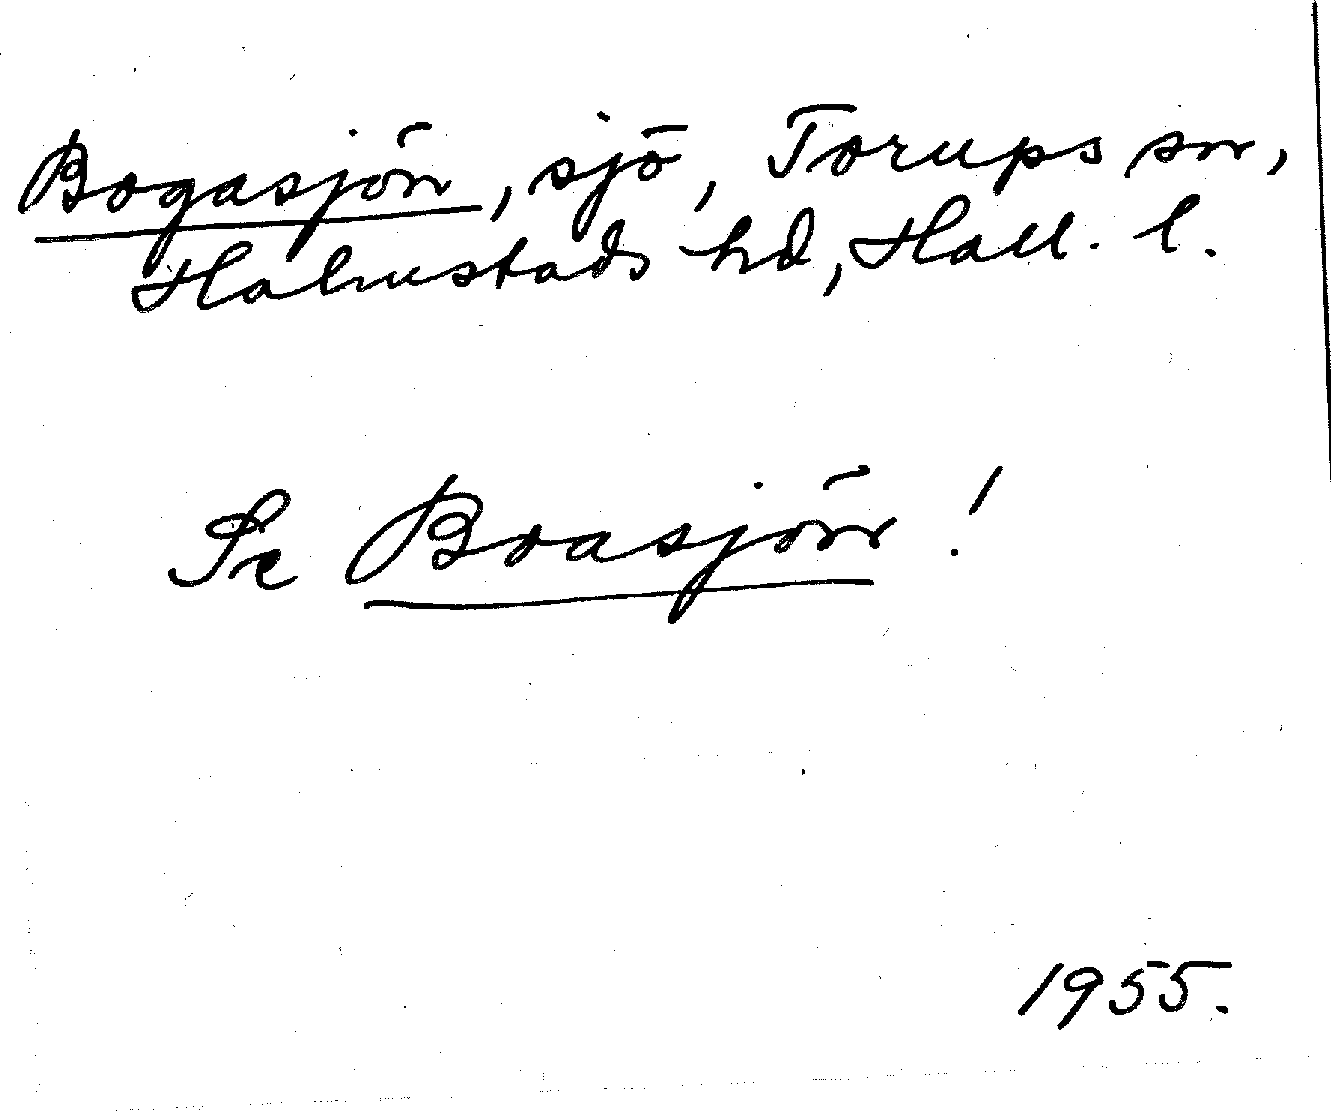 Bogasjön, sjö, Torups sn,
Halmstads hd, Hall. l.
Se Boasjön!
1955.